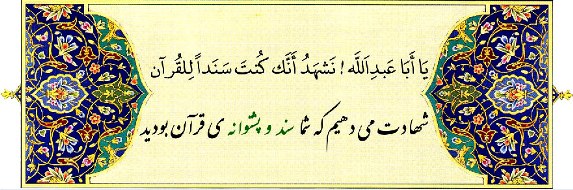 يَا أَبَا عَبدِاللَّه ! نَشهَدُ أَنَّك كُنتَ سَنَداً لِلقُرآن
شهادت می دهیم که شما سند و پشوانه ی قرآن بودید